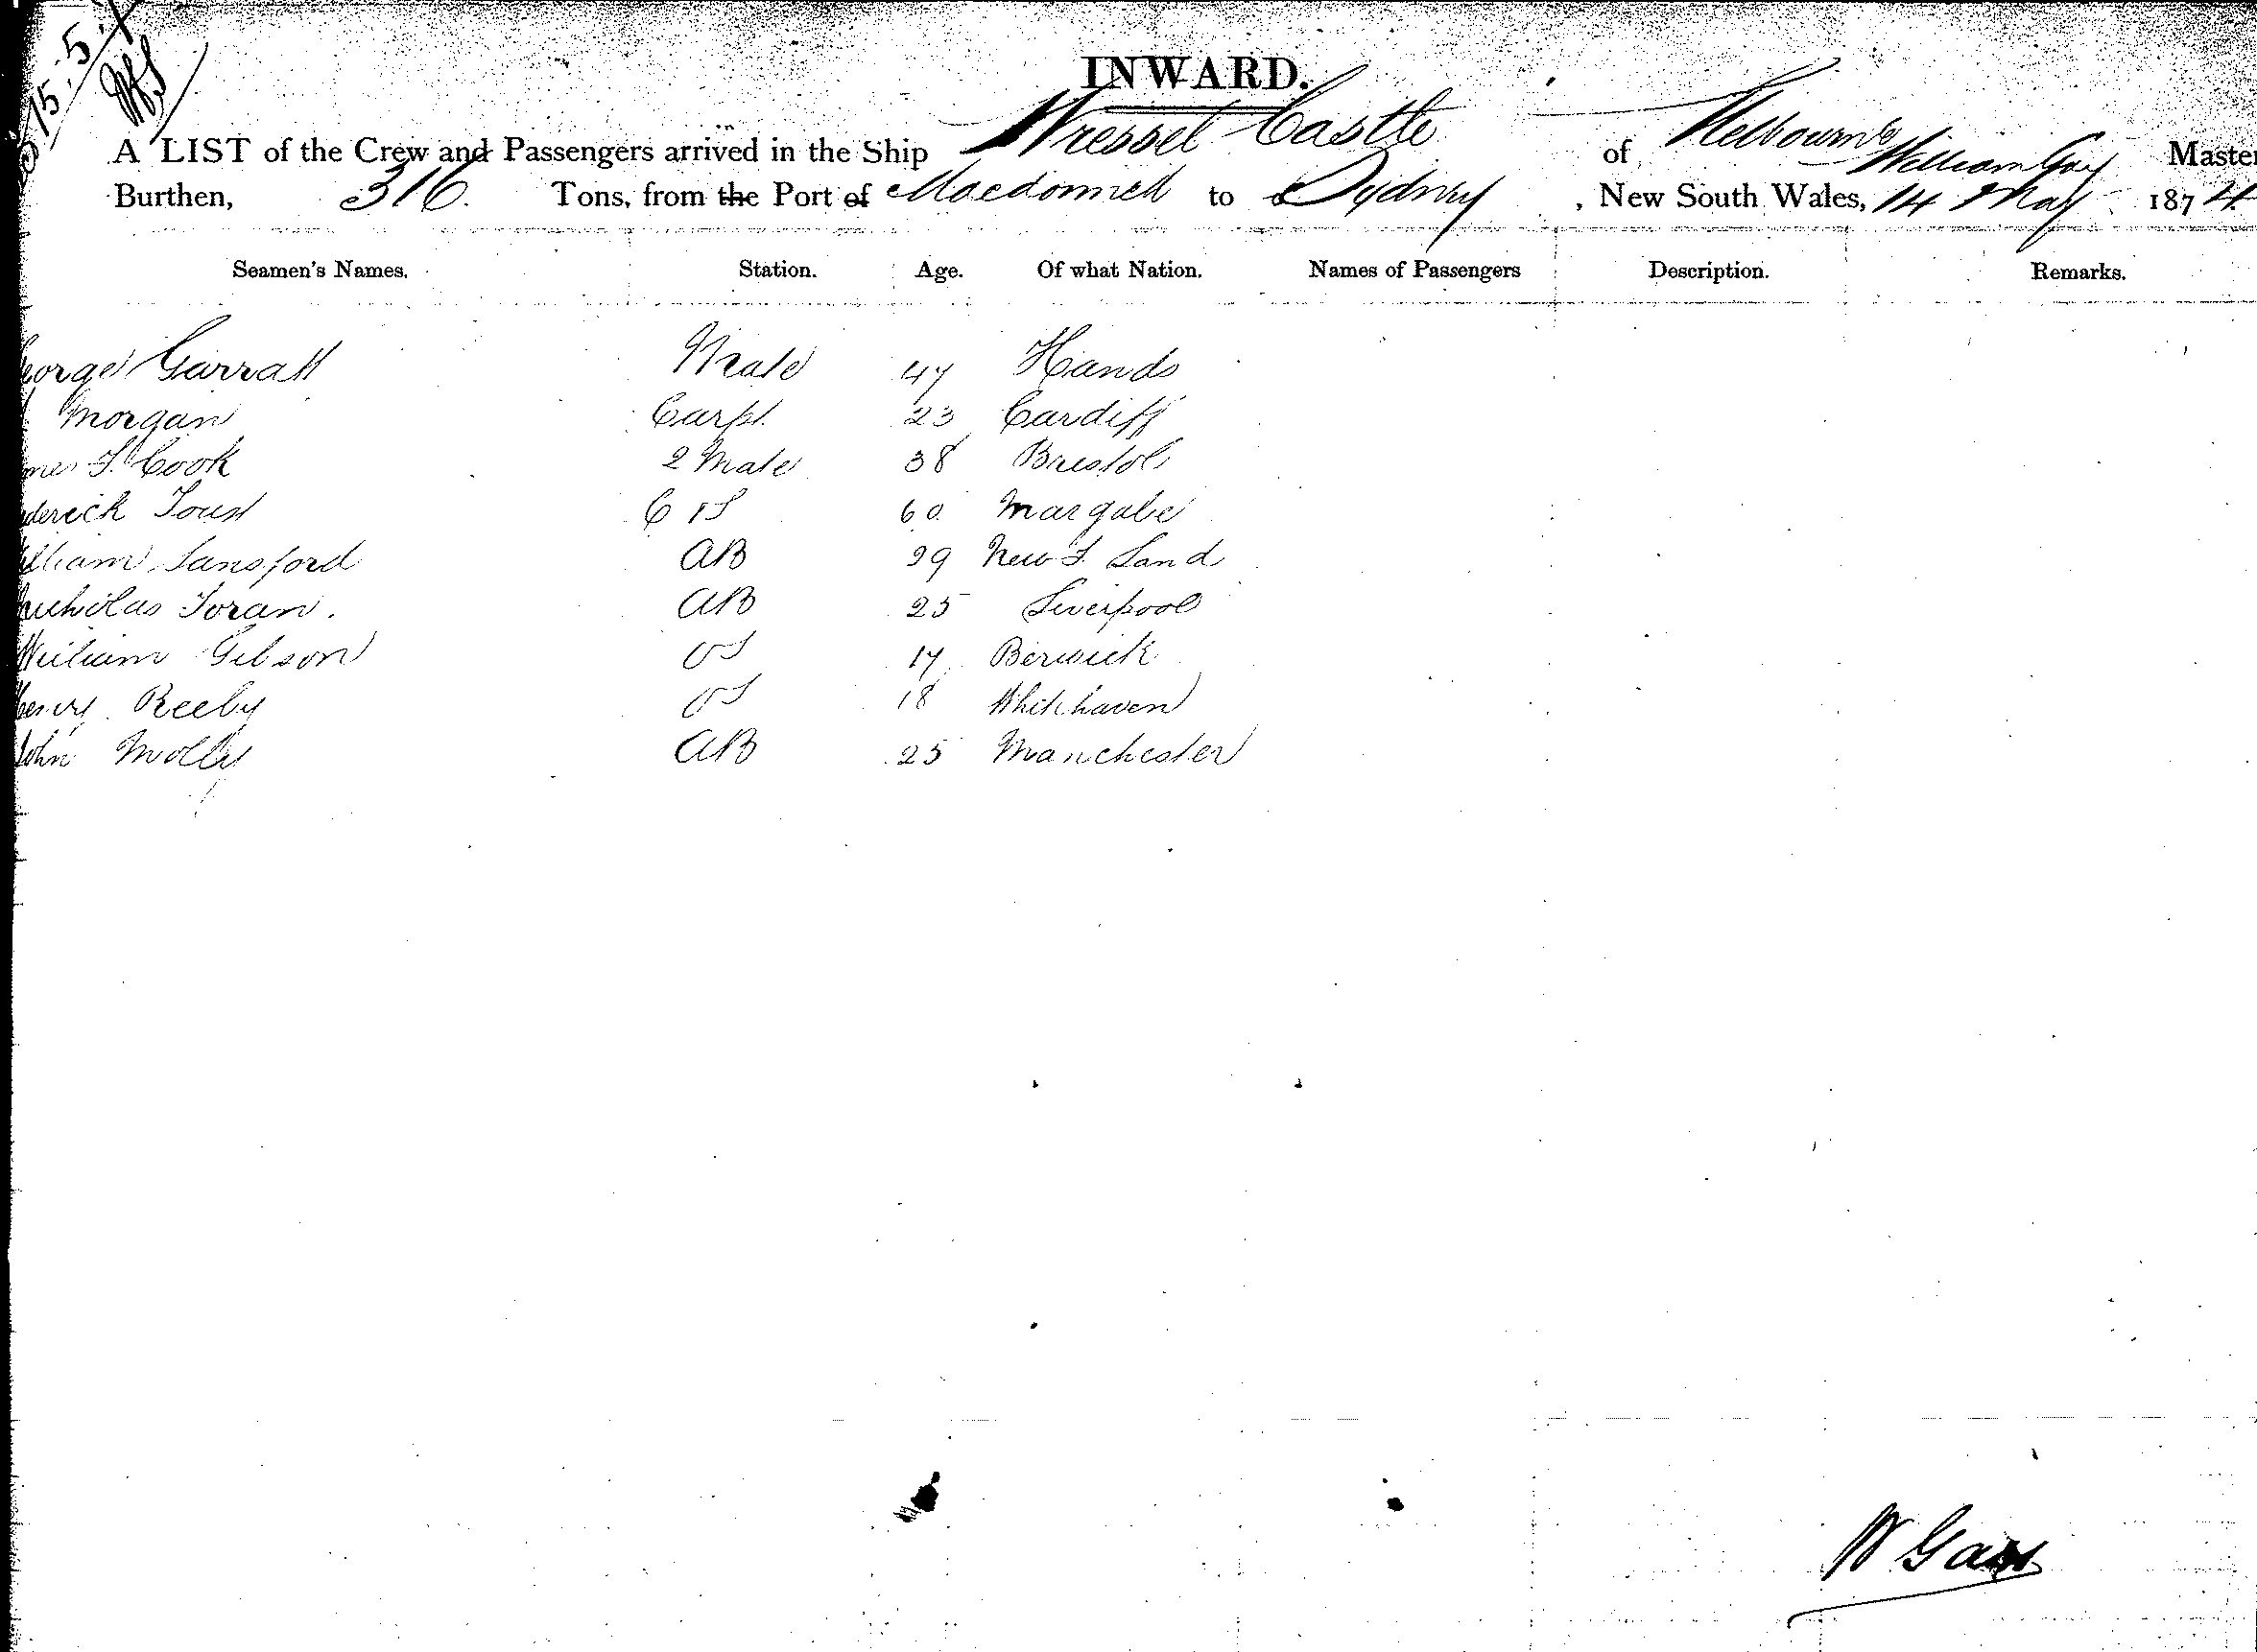 15.5.
INWARD.
A LIST of the Crew and Passengers arrived in the Ship Wressel Castle of Melbourne William Gay Master
Burthen, 316 Tons, from the Port of Macdonnell to Sydney, New South Wales, 14 May 1874
Seamen's Names. Station. Age. Of what Nation. Names of Passengers Description. Remarks.
eorge Garratt Mate 47 Hands
Morgan Carpt. 23 Cardiff
mes T. Cook 2 Mate 38 Bristol
derick 60 Margate
illiam Lansford AB 29 New F. Land
icholas Foran. AB 25 Liverpool
William Gibson OS 17 Berwick
Henry Reeby OS 18 Whitehaven
John Molly AB 25 Manchester
W Gay